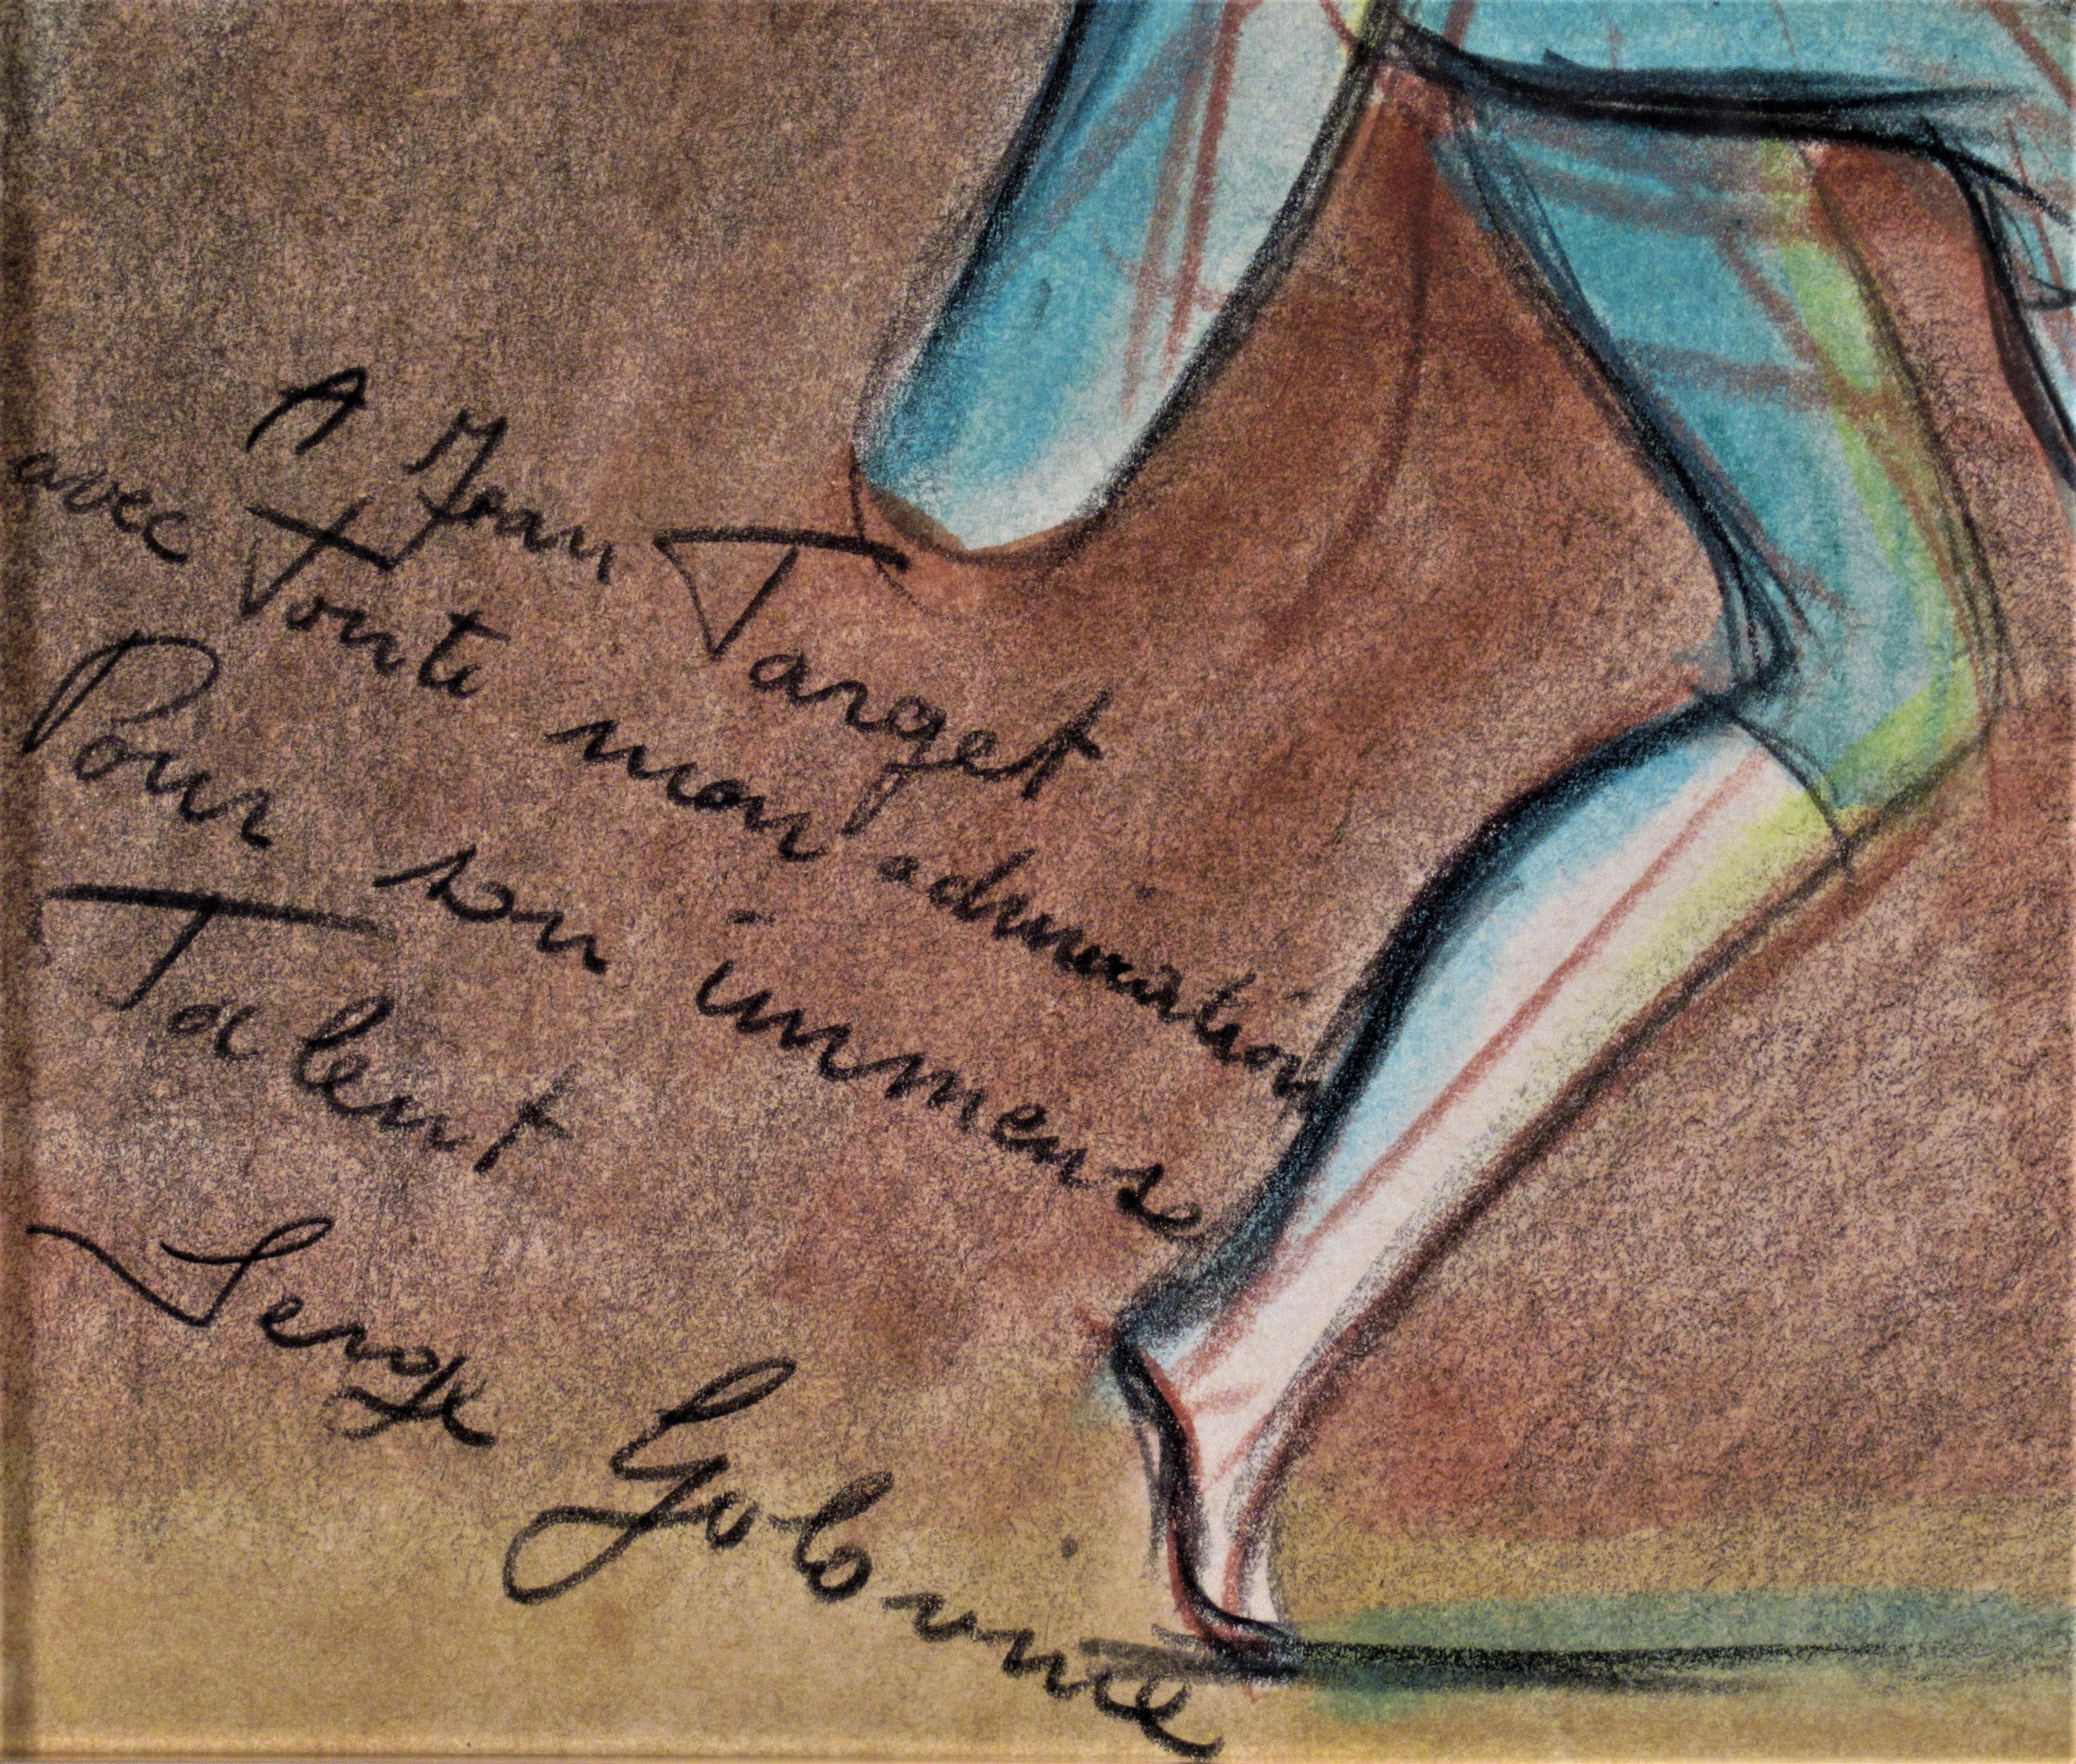 A Jean Target
avec toute mon admiration
Pour son immense
Talent
Serge Golovine